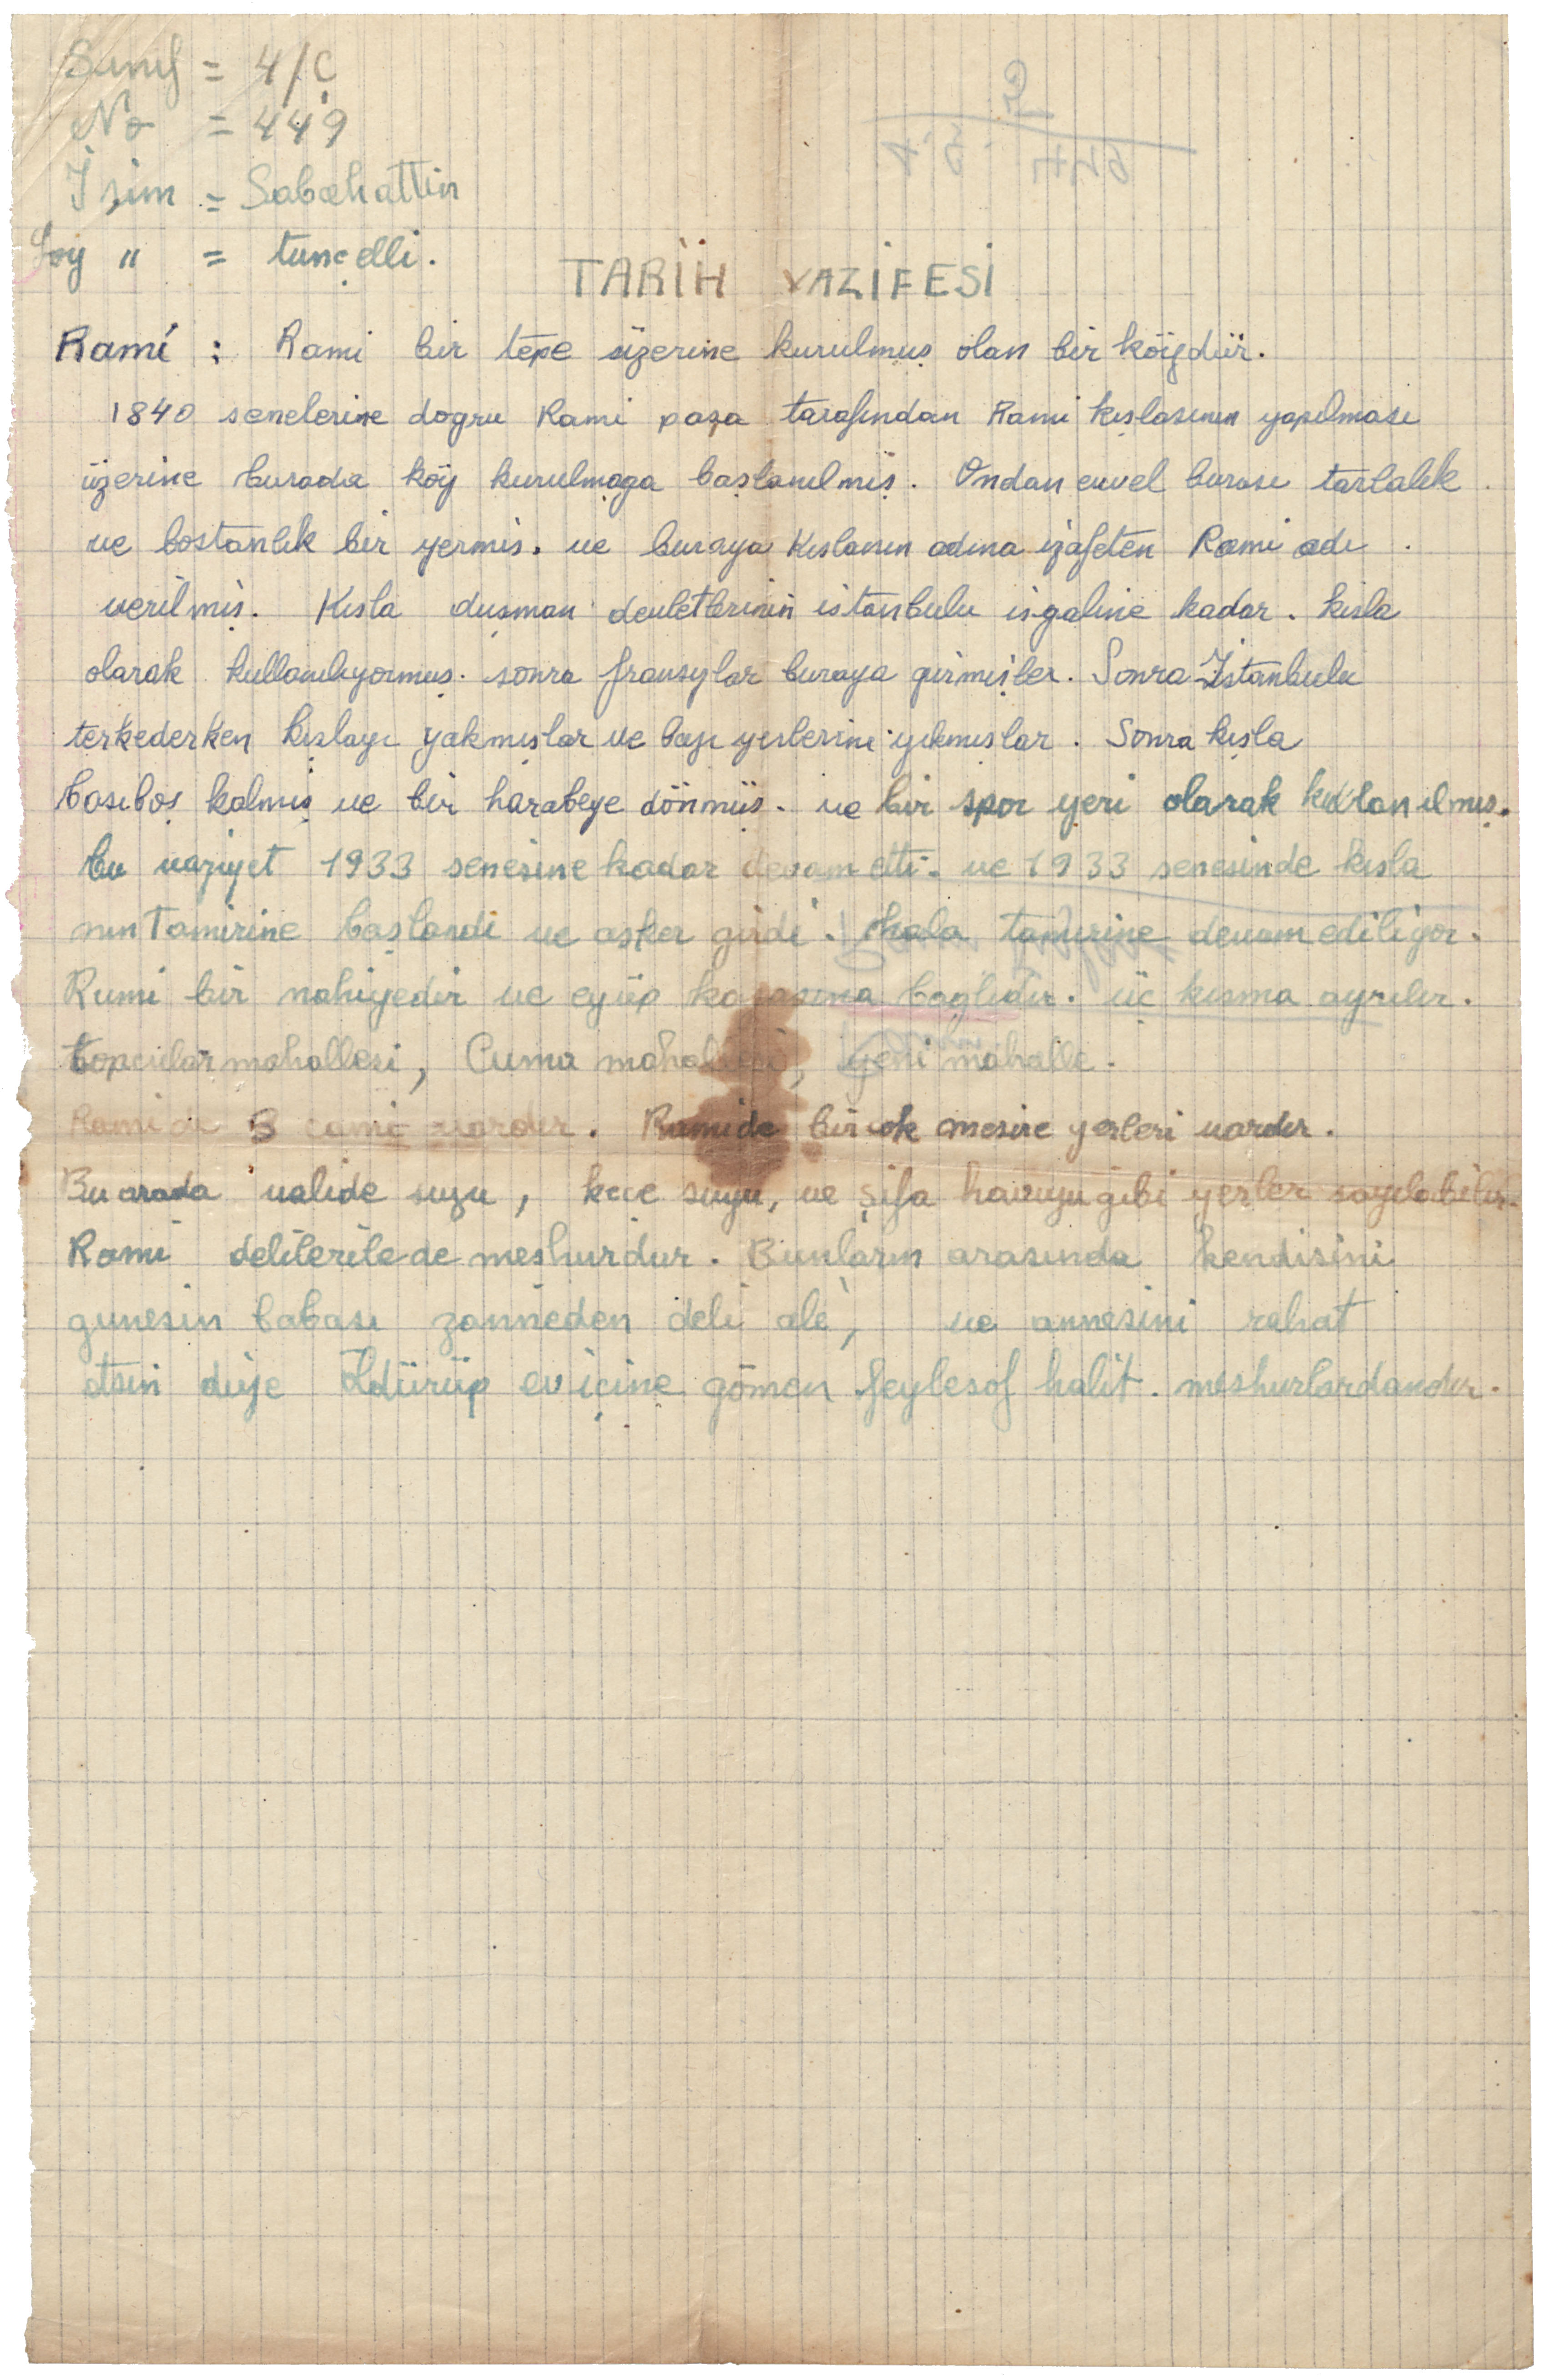 Sınıf = 4/Ç
No = 449
İsim = Sabahattin
Soy " = tunçelli.
TARİH VAZİFESİ
Rami : Rami bir tepe üzerine kurulmuş olan bir köydür.
1840 senelerine dogru Rami paşa tarafından Rami kışlasının yapılması
üzerine burada köy kurulmaga başlanılmış. Ondan evvel burası tarlalık
ve bostanlık bir yermiş. ve buraya Kışlanın adına izafeten Rami adı
verilmiş. Kışla duşman devletlerinin istanbulu işgaline kadar. kışla
olarak kullanılıyormuş. sonra fransızlar buraya girmişler. Sonra İstanbulu
terkederken kışlayı yakmışlar ve bazı yerlerini yıkmışlar. Sonra kışla
başıboş kalmış ve bir harabeye dönmüş. ve bir spor yeri olarak kullanılmış.
bu vaziyet 1933 senesine kadar devam etti. ve 1933 senesinde kışla
nın Tamirine başlandı ve asker girdi. hala tamirine devam ediliyor.
Rami bir nahiyedir ve eyüp kazasına baglıdır. üç kısma ayrılır.
topcular mahallesi, Cuma mahallesi, yeni mahalle.
Ramide 3 cami vardır. Ramide bir cok mesire yerleri vardır.
Bu arada valide suyu, kece suyu, ve şifa havuzu gibi yerler sayılabilir.
Rami delilerilede meshurdur. Bunların arasında kendisini
gunesin babası zanneden deli ali, ve annesini rahat
etsin diye öldürüp ev içine gömen feylesof halit. meshurlardandır.